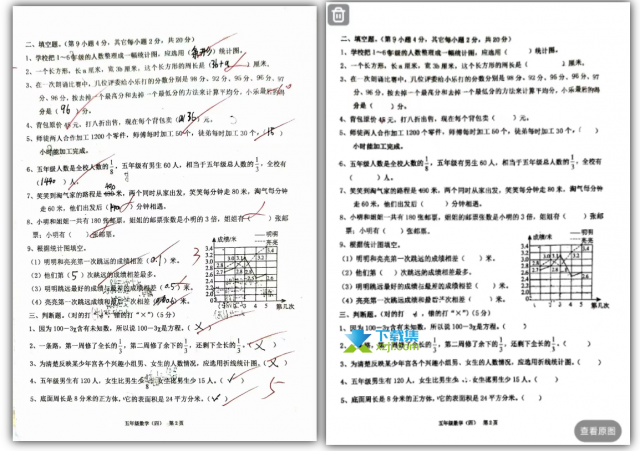 二、填空题。(第9小题4分，其它每小题2分，共20分)
1、学校把1～6年级的人数整理成一幅统计图，应选用(条形)统计图。
2、一个长方形，长a厘米，宽3b厘米，这个长方形的周长是( )厘米。
3、在一次朗诵比赛中，几位评委给小乐打的分数分别是98分、92分、95分、96分、97
分、96分，按去掉一个最高分和去掉一个最低分的方法来计算平均分，小乐最后的得
分是(96)分。
4、背包原价45元，打八折出售，现在每个背包卖(36)元。
5、师徒两人合作加工1200个零件，师傅每时加工50个，徒弟每时加工30个，(15)
小时能加工完成。
6、五年级人数是全校人数的1/8，五年级有男生60人，相当于五年级总人数的1/3，全校有
(1440)人。
7、笑笑到淘气家的路程是 米，两个同时从家出发，笑笑每分钟走80米，淘气每分钟
走60米，他们出发后( )分钟相遇。
8、小明和姐姐一共有180张邮票，姐姐的邮票张数是小明的3倍，姐姐有( )张邮
票；小明有( )张邮票。
9、根据统计图填空。
(1)明明和亮亮第一次跳远的成绩相差(0.1)米。
(2)他们第(5)次跳远的成绩相差最多。
(3)明明跳远最好的成绩与最差的成绩相差(0.5)米。
(4)亮亮第一次跳远成绩和最后一次相差( )米。
成绩/米
明明
亮亮
3.4
3.2
3.0
2.8
2.6
2.4
0 1 2 3 4 5
第几次
3
三、判断题。(对的打 ，错的打“×”)(5分)
1、因为100-3x含有未知数，所以说100-3x是方程。(×)
2、一条路，第一周修了全长的1/3，第二周修了余下的1/3，还剩下全长的1/3。(×)
3、为清楚反映某少年宫各个兴趣小组男、女生的人数情况，应选用折线统计图。(×)
4、五年级男生有120人，女生比男生少 ，女生比男生少15人。(✓)
5、底面周长是8分米的正方体，它的表面积是24平方分米。(✓)
5
五年级数学(四) 第2页
二、填空题。(第9小题4分，其它每小题2分，共20分)
1、学校把1～6年级的人数整理成一幅统计图，应选用( )统计图。
2、一个长方形，长a厘米，宽3b厘米，这个长方形的周长是( )厘米。
3、在一次朗诵比赛中，几位评委给小乐打的分数分别是98分、92分、95分、96分、97
分、96分，按去掉一个最高分和去掉一个最低分的方法来计算平均分，小乐最后的得
分是( )分。
4、背包原价45元，打八折出售，现在每个背包卖( )元。
5、师徒两人合作加工1200个零件，师傅每时加工50个，徒弟每时加工30个，( )
小时能加工完成。
6、五年级人数是全校人数的1/8，五年级有男生60人，相当于五年级总人数的1/3，全校有
( )人。
7、笑笑到淘气家的路程是 米，两个同时从家出发，笑笑每分钟走80米，淘气每分钟
走60米，他们出发后( )分钟相遇。
8、小明和姐姐一共有180张邮票，姐姐的邮票张数是小明的3倍，姐姐有( )张邮
票；小明有( )张邮票。
9、根据统计图填空。
(1)明明和亮亮第一次跳远的成绩相差( )米。
(2)他们第( )次跳远的成绩相差最多。
(3)明明跳远最好的成绩与最差的成绩相差( )米。
(4)亮亮第一次跳远成绩和最后一次相差( )米。
成绩/米
明明
亮亮
3.4
3.2
3.0
2.8
2.6
2.4
0 1 2 3 4 5
第几次
三、判断题。(对的打 ，错的打“×”)(5分)
1、因为100-3x含有未知数，所以说100-3x是方程。( )
路，第一周修了全长的1/3，第二周修了余下的1/3，还剩下全长的1/3。( )
3、为清楚反映某少年宫各个兴趣小组男、女生的人数情况，应选用折线统计图。( )
4、五年级男生有120人，女生比男生少 ，女生比男生少15人。( )
5、底面周长是8分米的正方体，它的表面积是24平方分米。( )
五年级数学(四) 第2页
下载集
xzji.com
查看原图